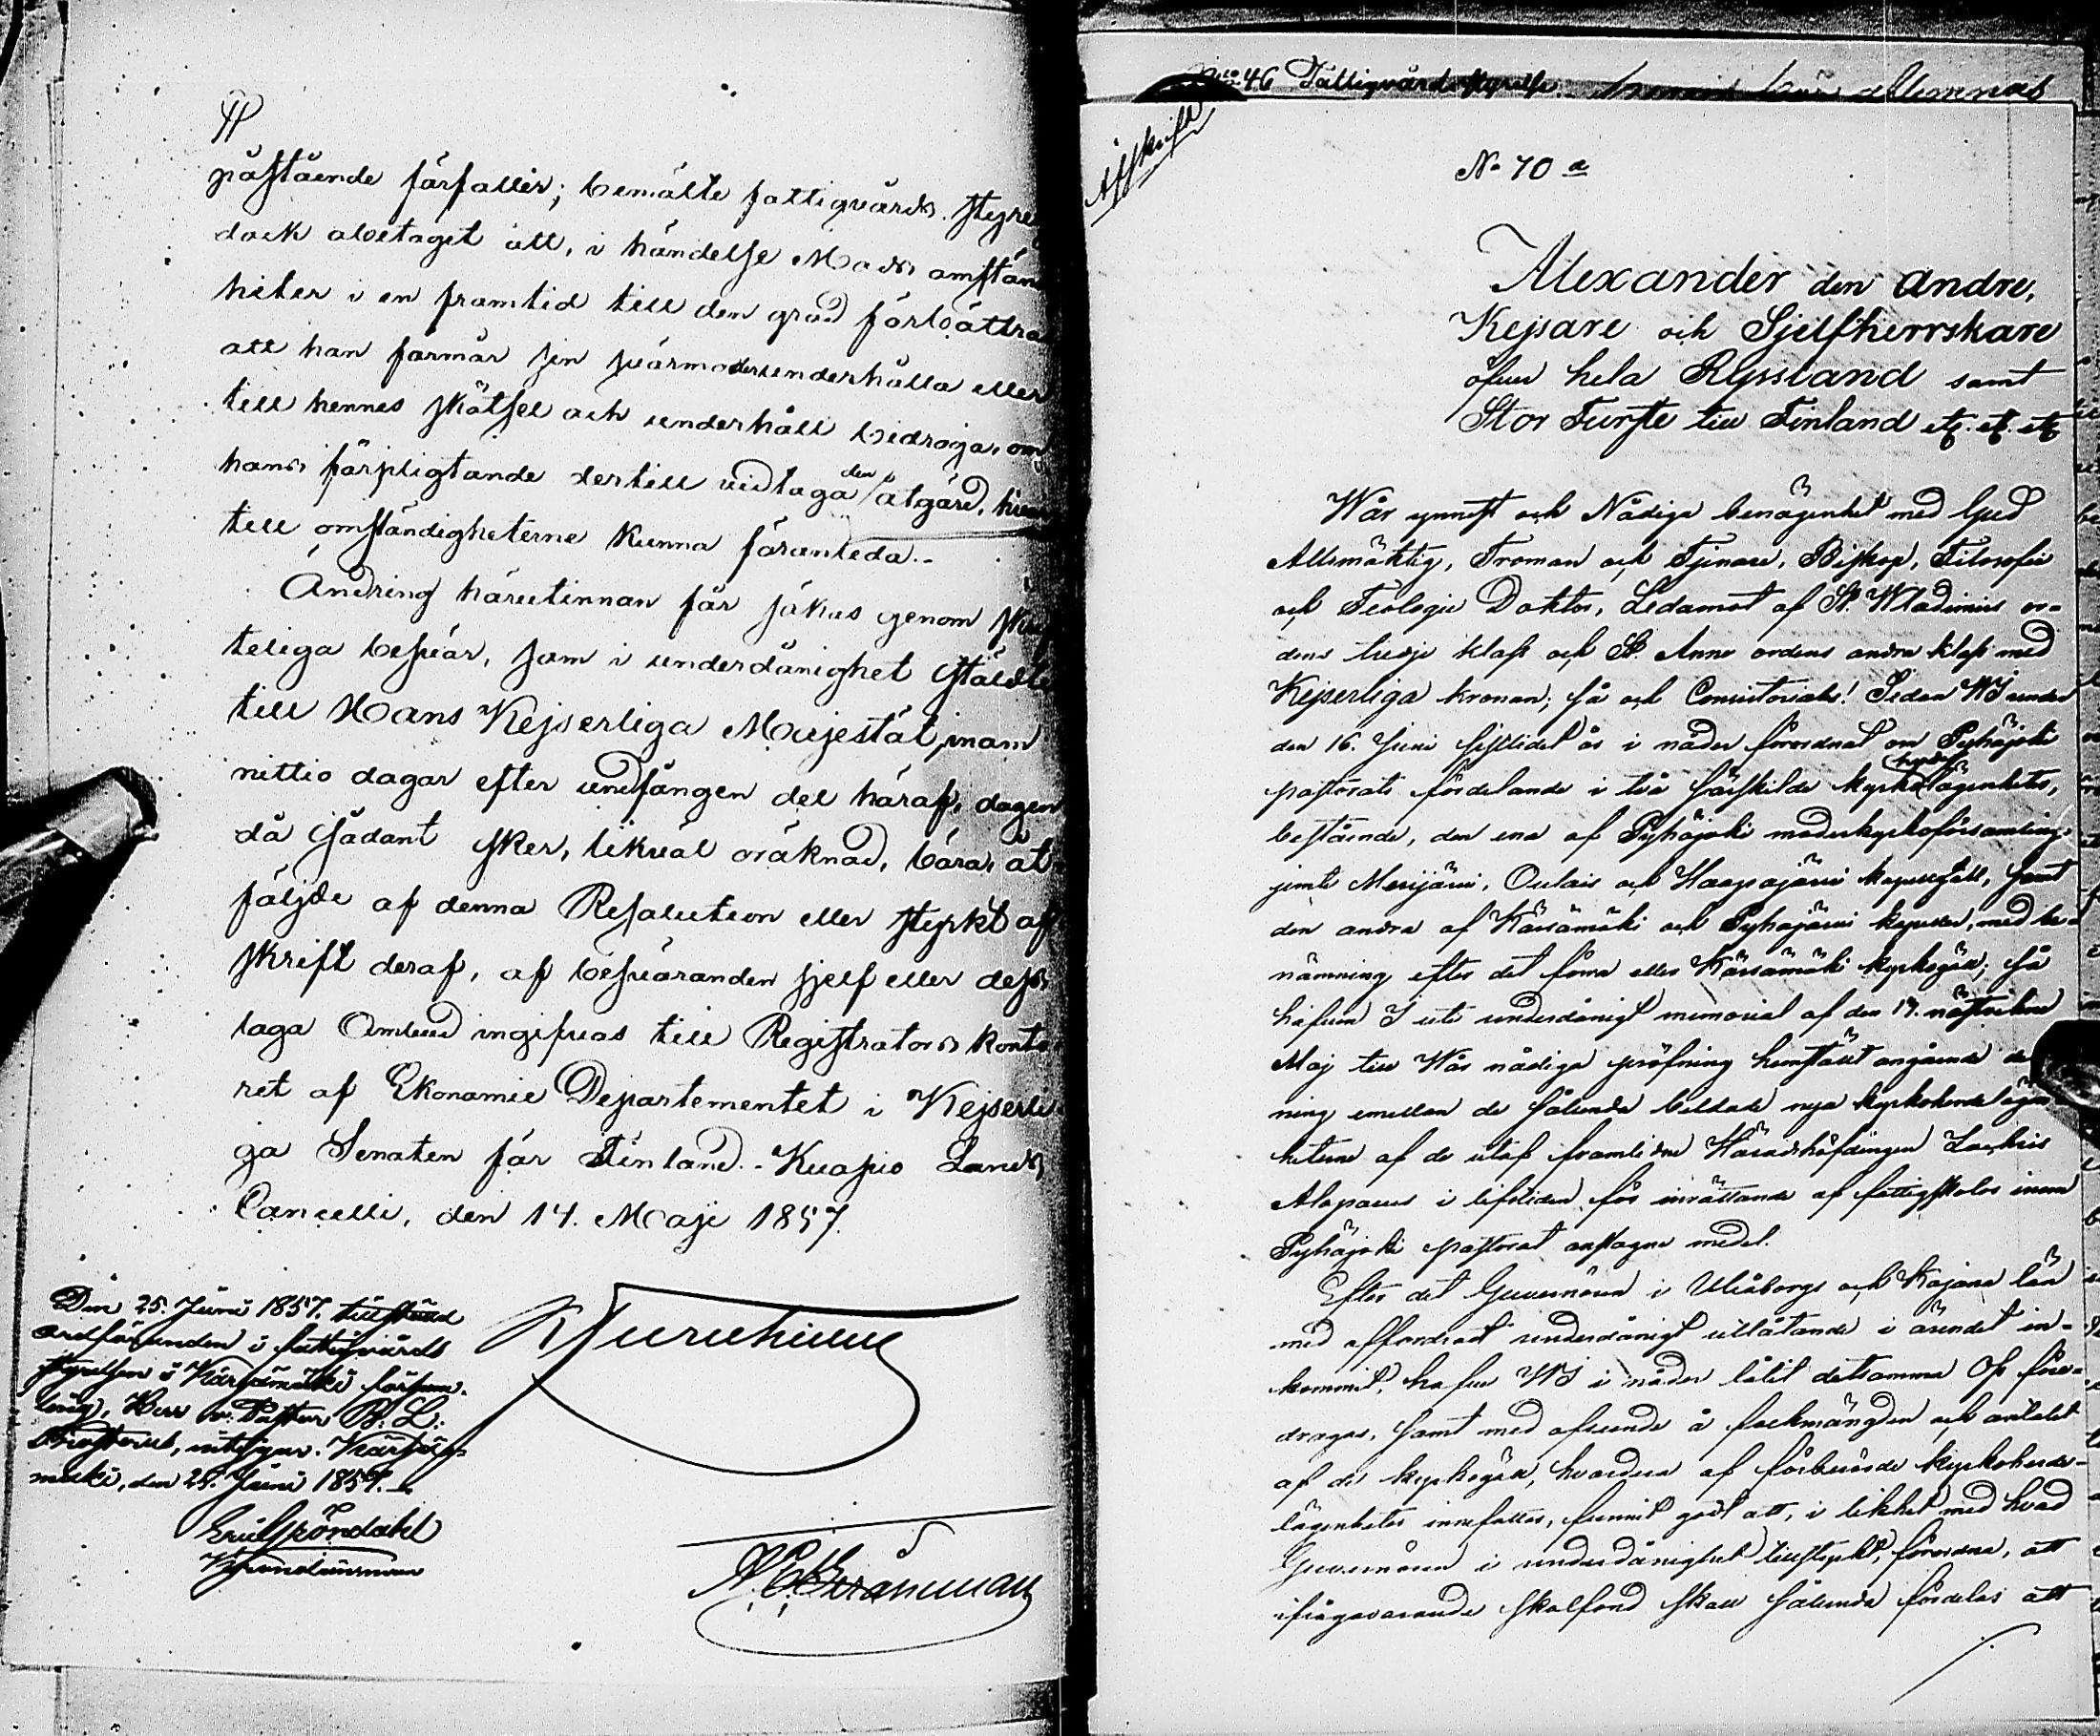 påstående förfaller; bemälte fattigvårds styre
dock obetaget att, i händelse Mads omstän
heter i en framtid till den grad förbättra
att han förmår sin svärmoder underhålla eller
till hennes skötsel och underhåll bidraga, om
hans förpligtande dertill vidtaga den åtgärd, hvar
till omständigheterne kunna föranleda.-
Ändring härutinnan får sökas genom skrif
teliga besvär, som i underdånighet ställde
till Hans Kejserliga Majestät, inom
nittio dagar efter undfången del häraf, dagen
då sådant sker, likväl oräknad, böra, åt-
följde af denna Resolution eller styrkt af-
skrift deraf, af besväranden sjelf eller dess
laga Ombud ingifvas till Registrators konto
ret af Ekonomie Departementet i Kejserli-
ga Senaten för Finland.- Kuopio Lands
Cancelli, den 14. Maji 1857.
Den 25. Juni 1857. tillställd
ordföranden i fattigvårds
styrelsen i Kärsämäki försam-
ling, Herr v. Pastor B. L.
intygar. Kärsä-
mäki, den 25. Juni 1857.
Kronolänsman
No 46 Fattigvårdsstyrelse
Afskrift
No 70 a
Alexander den Andre,
Kejsare och Sjelfherrskare
öfver hela Ryssland samt
Stor Furste till Finland etc. etc. etc
Wår ynnest och Nådiga benägenhet med Gud
Allsmäktig, Troman och Tjenare, Biskop, Filosofie
och Teologie Doktor, Ledamot af St. Wladimirs or-
dens tredje klass och St. Anne ordens andra klass med
Kejserliga kronan; så och Consistoriales! Sedan WJ under
den 16. Juni sistlidet år i nåder förordnat om Pyhäjoki
pastorats fördelande i två särskilda kyrkoherdelägenheter,
bestående, den ena af Pyhäjoki moderkyrkoförsamling
jemte Merijärvi, Oulais och Haapajärvi kapellgäll, samt
den andra af Kärsämäki och Pyhäjärvi kapeller, med be-
nämning efter det förra eller Kärsämäki kyrkogäll; så
hafven I uti underdånigt memorial af den 17. nästvikne
Maj till Wår nådiga pröfning hemställt angående de
ning emellan de sålunda bildade nya kyrkoherdelägen
heterne af de utaf framlidne Häradshöfdingen Zachris
Alopaeus i lifstiden för inrättande af fattigskolor inom
Pyhäjoki pastorat anslagne medel.
Efter det Guvernören i Uleåborgs och Kajana län
med affordradt underdånigt utlåtande i ärendet in-
kommit, hafve WJ i nåder låtit detsamma Oss före-
dragas, samt med afseende å folkmängden och antalet
af de kyrkogäll, hvardera af förberörde kyrkoherde-
lägenheter innefattar, funnit godt att, i likhet med hvad
Guvernören i underdånighet tillstyrkt, förordna, att
ifrågavarande skolfond skall sålunda fördelas att